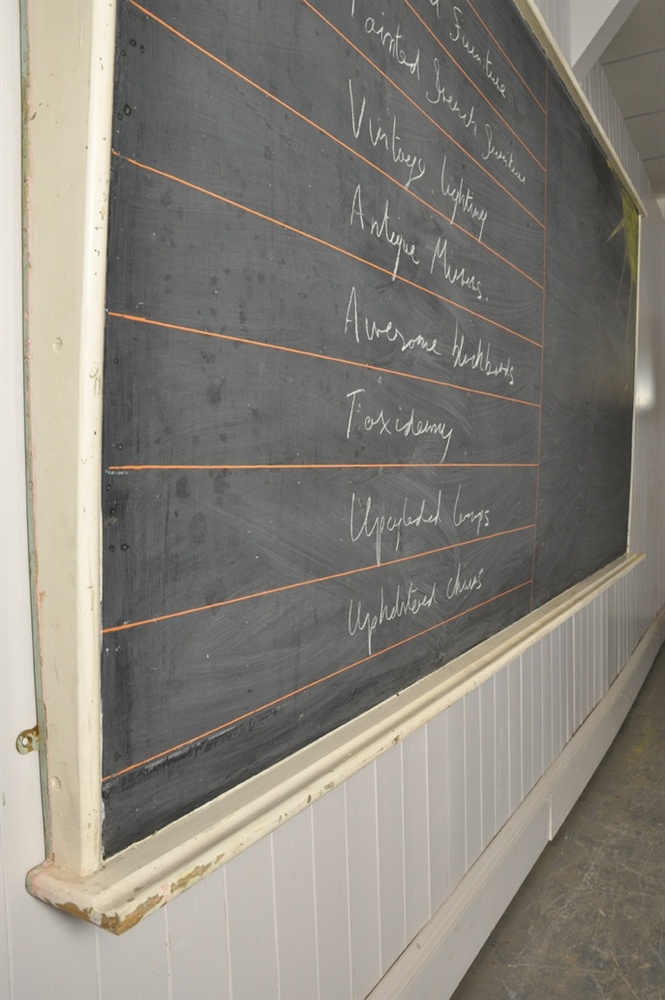 Furniture
Painted French Furniture
Vintage lighting
Antique Mirrors.
Awesome blackboards
Taxidermy
Upcycled lamps
Upholstered chairs